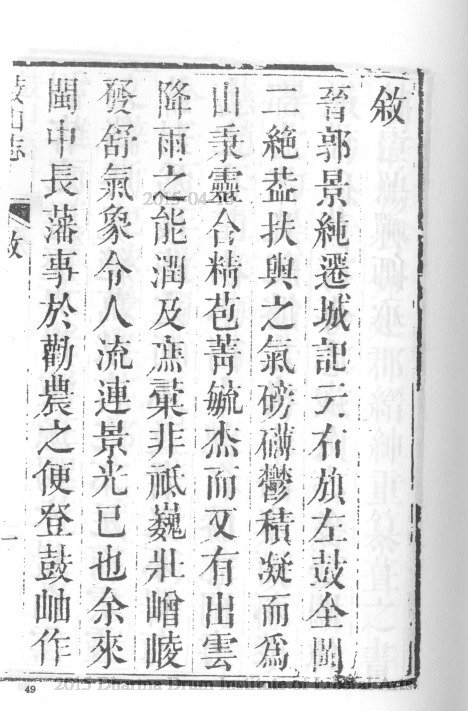 敘
晉郭景純遷城記云右旗左鼓全閩
二絶葢扶輿之氣磅礴鬱積凝而爲
山秉靈合精苞菁毓杰而又有出雲
降雨之能潤及庶彙非祇巍壯嶒崚
發舒氣象令人流連景光已也余來
閩中長藩事於勸農之便登鼓岫作
鼓山志
敘
一
49
2015-04-2
2015 Dharma Drum Institute of Liberal Arts